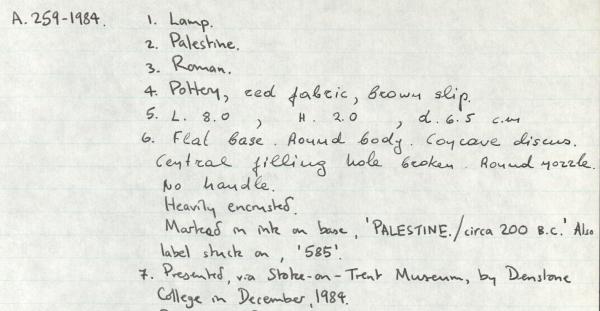 A.259-1984. 1. Lamp.
2. Palestine.
3. Roman.
4. Pottery, red fabric, brown slip.
5. L. 8.0 , H. 2.0 , d. 6.5 cm
6. Flat base. Round body. Concave discus.
Central filling hole broken. Round nozzle.
No handle.
Heavily encrusted.
Marked in ink on base, 'PALESTINE./circa 200 B.C.' Also
label stuck on, '585'.
7. Presented, via Stoke-on-Trent Museum, by Denstone
College in December, 1984.